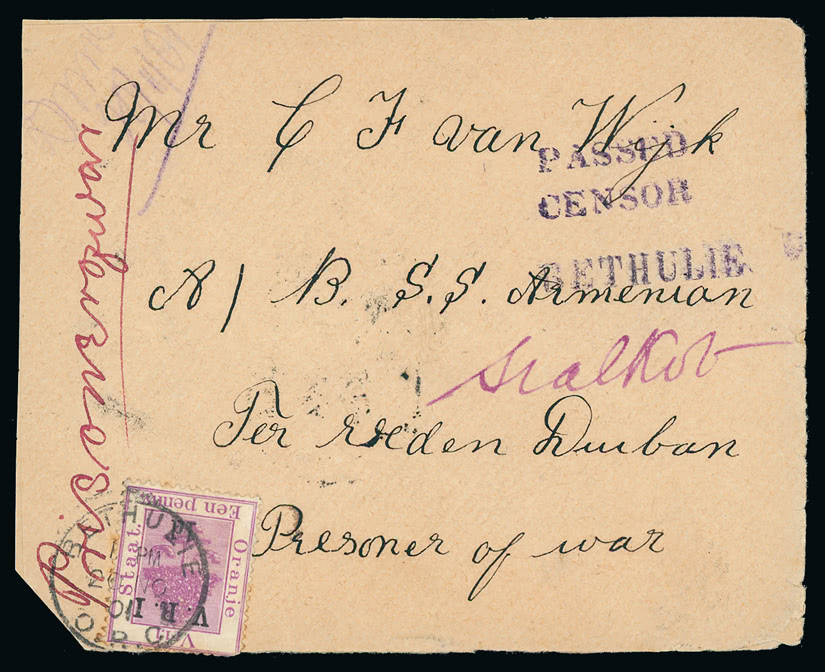 Mr C F van Wijk
PASSED
CENSOR
BETHULIE
A/B. S.S. Armenian
Sialkot
Ter reeden Durban
Presoner of war
Prisoner of war
Een penn
Oranje
Staat.
V. R. I.
BETHULIE
PM
O.R.C.